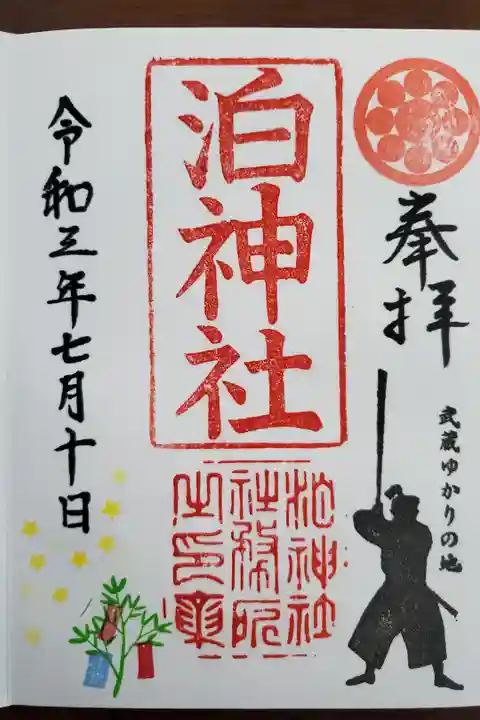 奉拝
武蔵ゆかりの地
泊神社
泊神社
社務所
之印章
令和三年七月十日